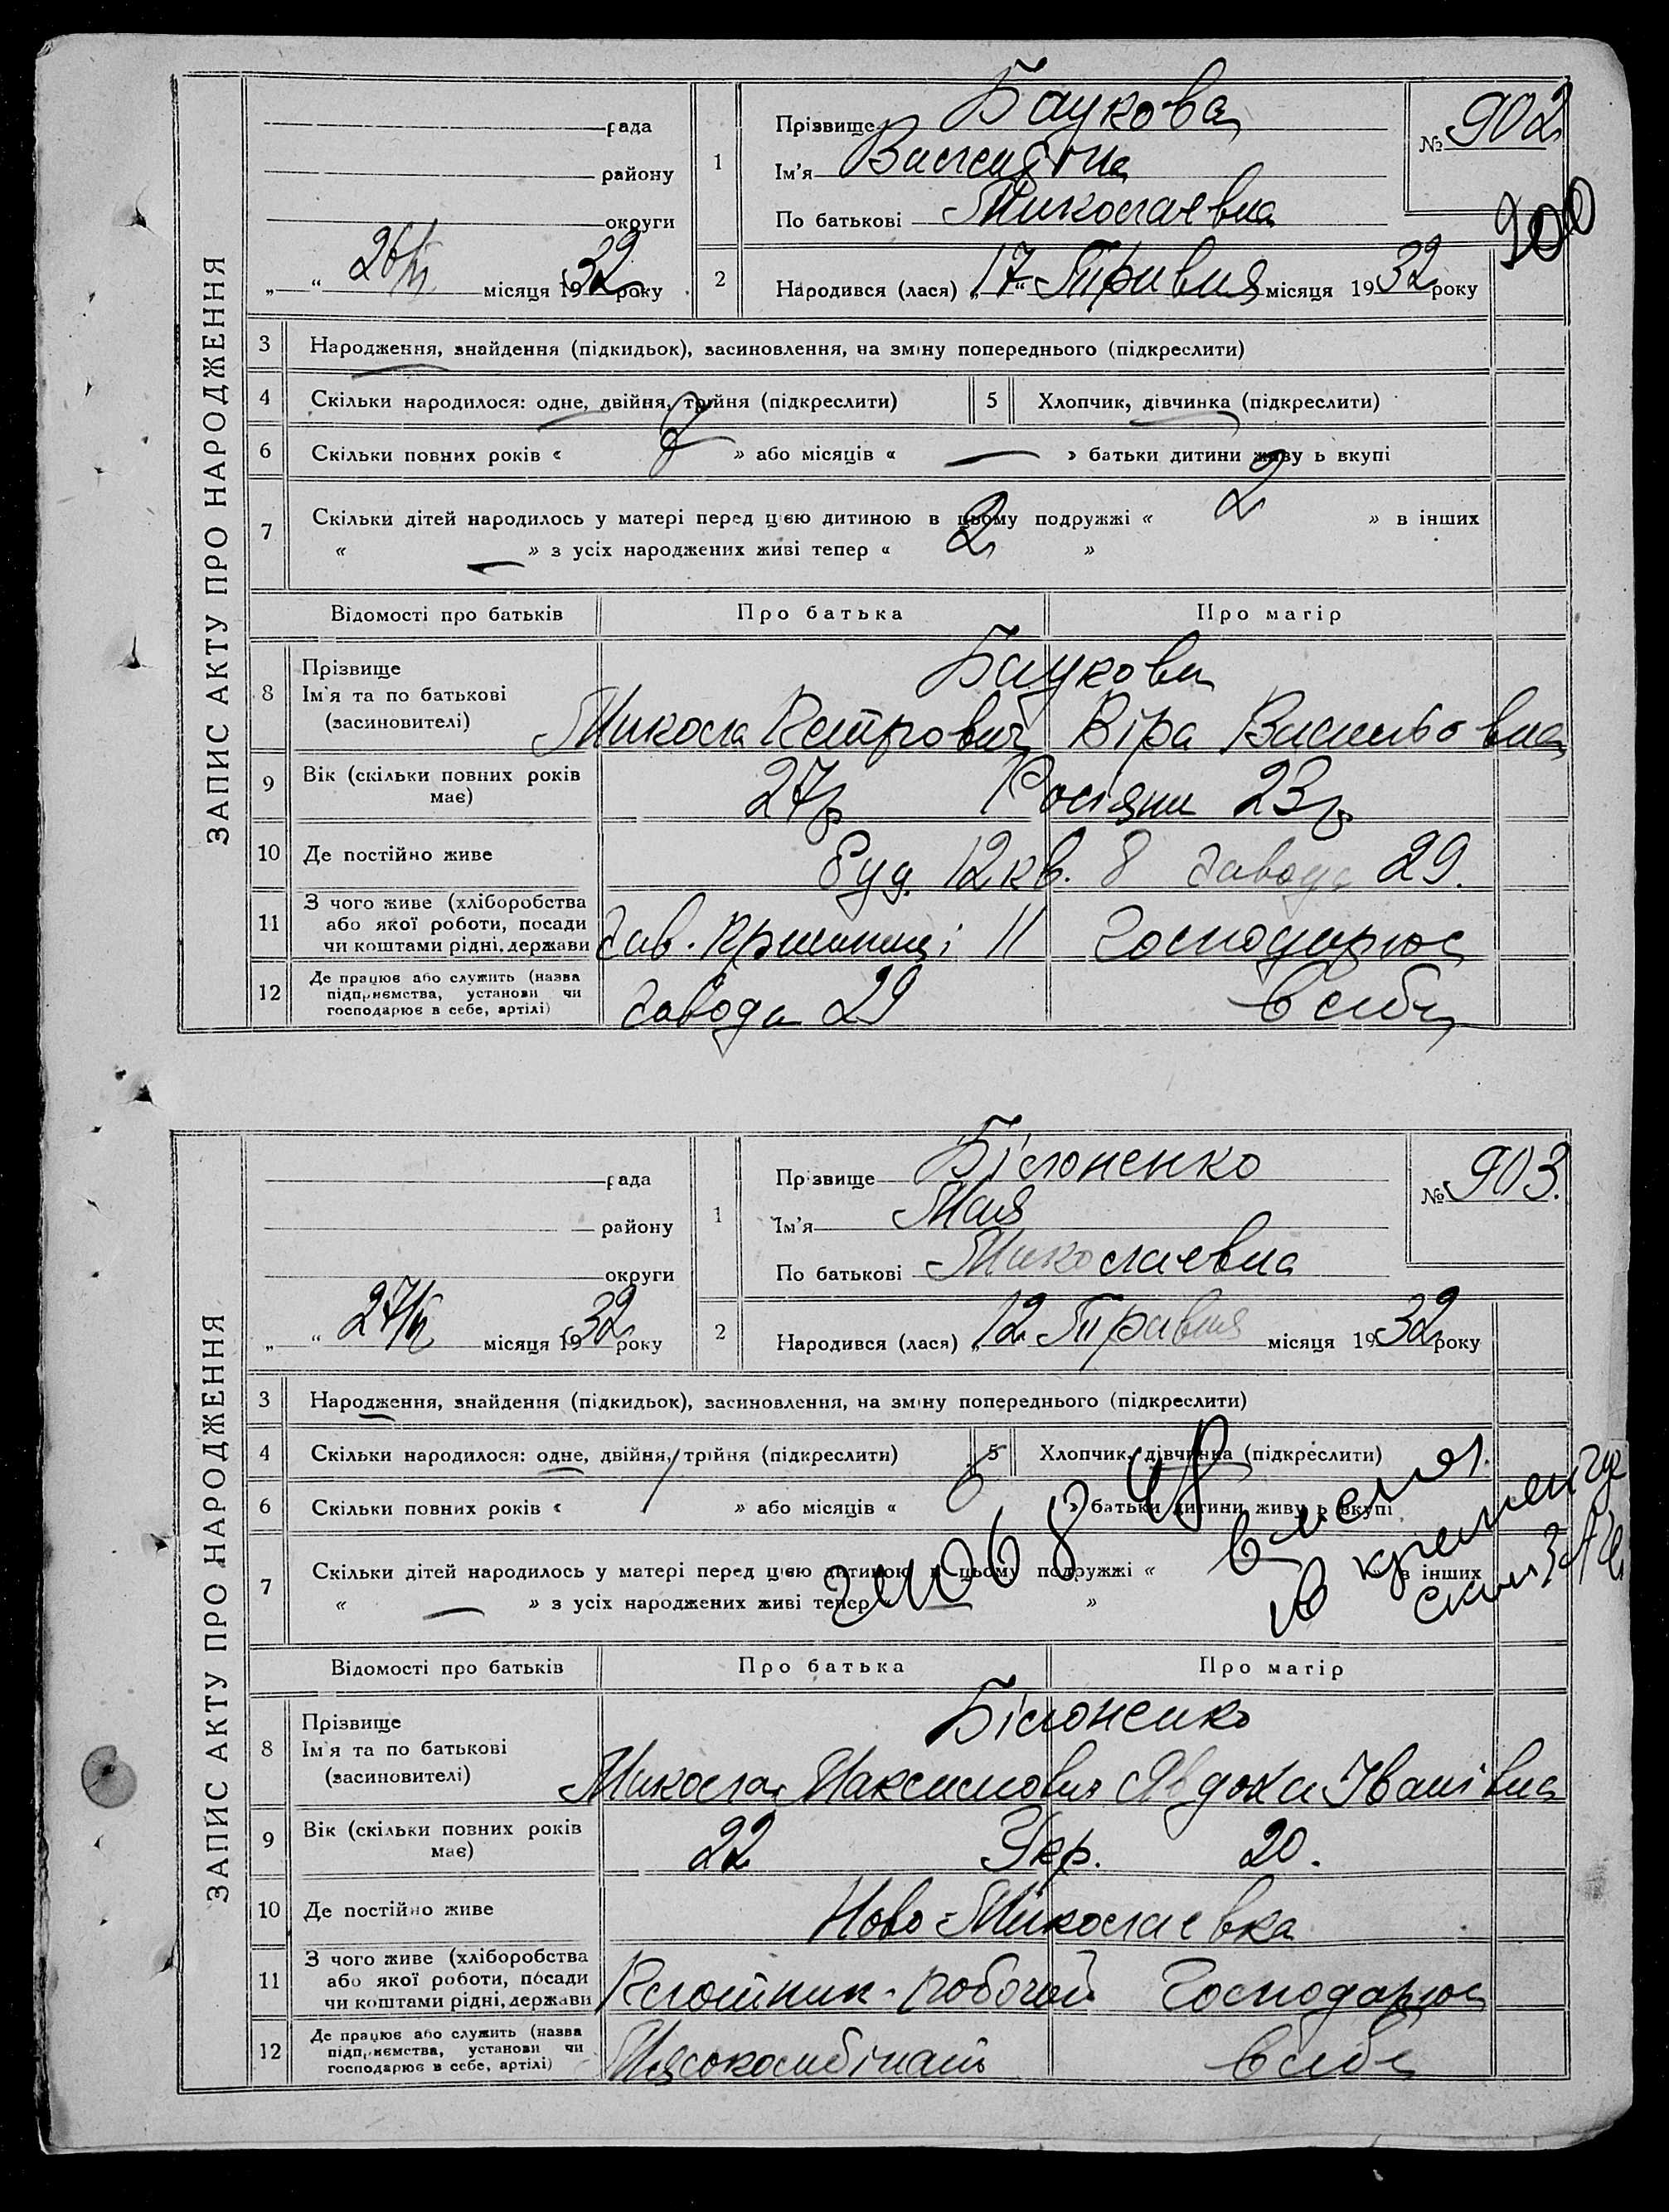 ЗАПИС АКТУ ПРО НАРОДЖЕННЯ
рада
району
округи
„ “ 26/V місяця 1932 року
1
Прізвище Баукова
Ім'я Валентина
По батькові Миколаевна
№ 902
900
2
Народився (лася) „17“ Травня місяця 1932 року
3 Народження, знайдення (підкидьок), засиновлення, на зміну попереднього (підкреслити)
4 Скільки народилося: одне, двійня, трійня (підкреслити)
5 Хлопчик, дівчинка (підкреслити)
6 Скільки повних років « 7 » або місяців « — » батьки дитини живуть вкупі
7 Скільки дітей народилось у матері перед цією дитиною в цьому подружжі « 2 » в інших
« — » з усіх народжених живі тепер « 2 »
Відомості про батьків Про батька Про матір
8 Прізвище Баукови
Ім'я та по батькові Микола Петрович Віра Васильовна
(засиновителі)
9 Вік (скільки повних років має) 27р Росіяни 23р
10 Де постійно живе буд. 12 кв. 8 завода 29.
11 З чого живе (хліборобства
або якої роботи, посади
чи коштами рідні, держави Зав. Господарює
12 Де працює або служить (назва
підприємства, установи чи
господарює в себе, артілі) завода 29 в себе
ЗАПИС АКТУ ПРО НАРОДЖЕННЯ
рада
району
округи
„ “ 27/V місяця 1932 року
1
Прізвище Білоненко
Ім'я Мая
По батькові Миколаевна
№ 903.
2
Народився (лася) „12 Травня місяця 1932 року
3 Народження, знайдення (підкидьок), засиновлення, на зміну попереднього (підкреслити)
4 Скільки народилося: одне, двійня, трійня (підкреслити)
5 Хлопчик, дівчинка (підкреслити)
6 Скільки повних років « » або місяців « » батьки дитини живуть вкупі
7 Скільки дітей народилось у матері перед цією дитиною в цьому подружжі « в інших
« — » з усіх народжених живі тепер »
Відомості про батьків Про батька Про матір
8 Прізвище Білоненко
Ім'я та по батькові Микола Максимович Явдоха Іванівна
(засиновителі)
9 Вік (скільки повних років має) 22 Укр. 20.
10 Де постійно живе Ново-Миколаевка
11 З чого живе (хліборобства
або якої роботи, посади
чи коштами рідні, держави Плотник-робочий Господарює
12 Де працює або служить (назва
підприємства, установи чи
господарює в себе, артілі) Мясокомбінат в себе